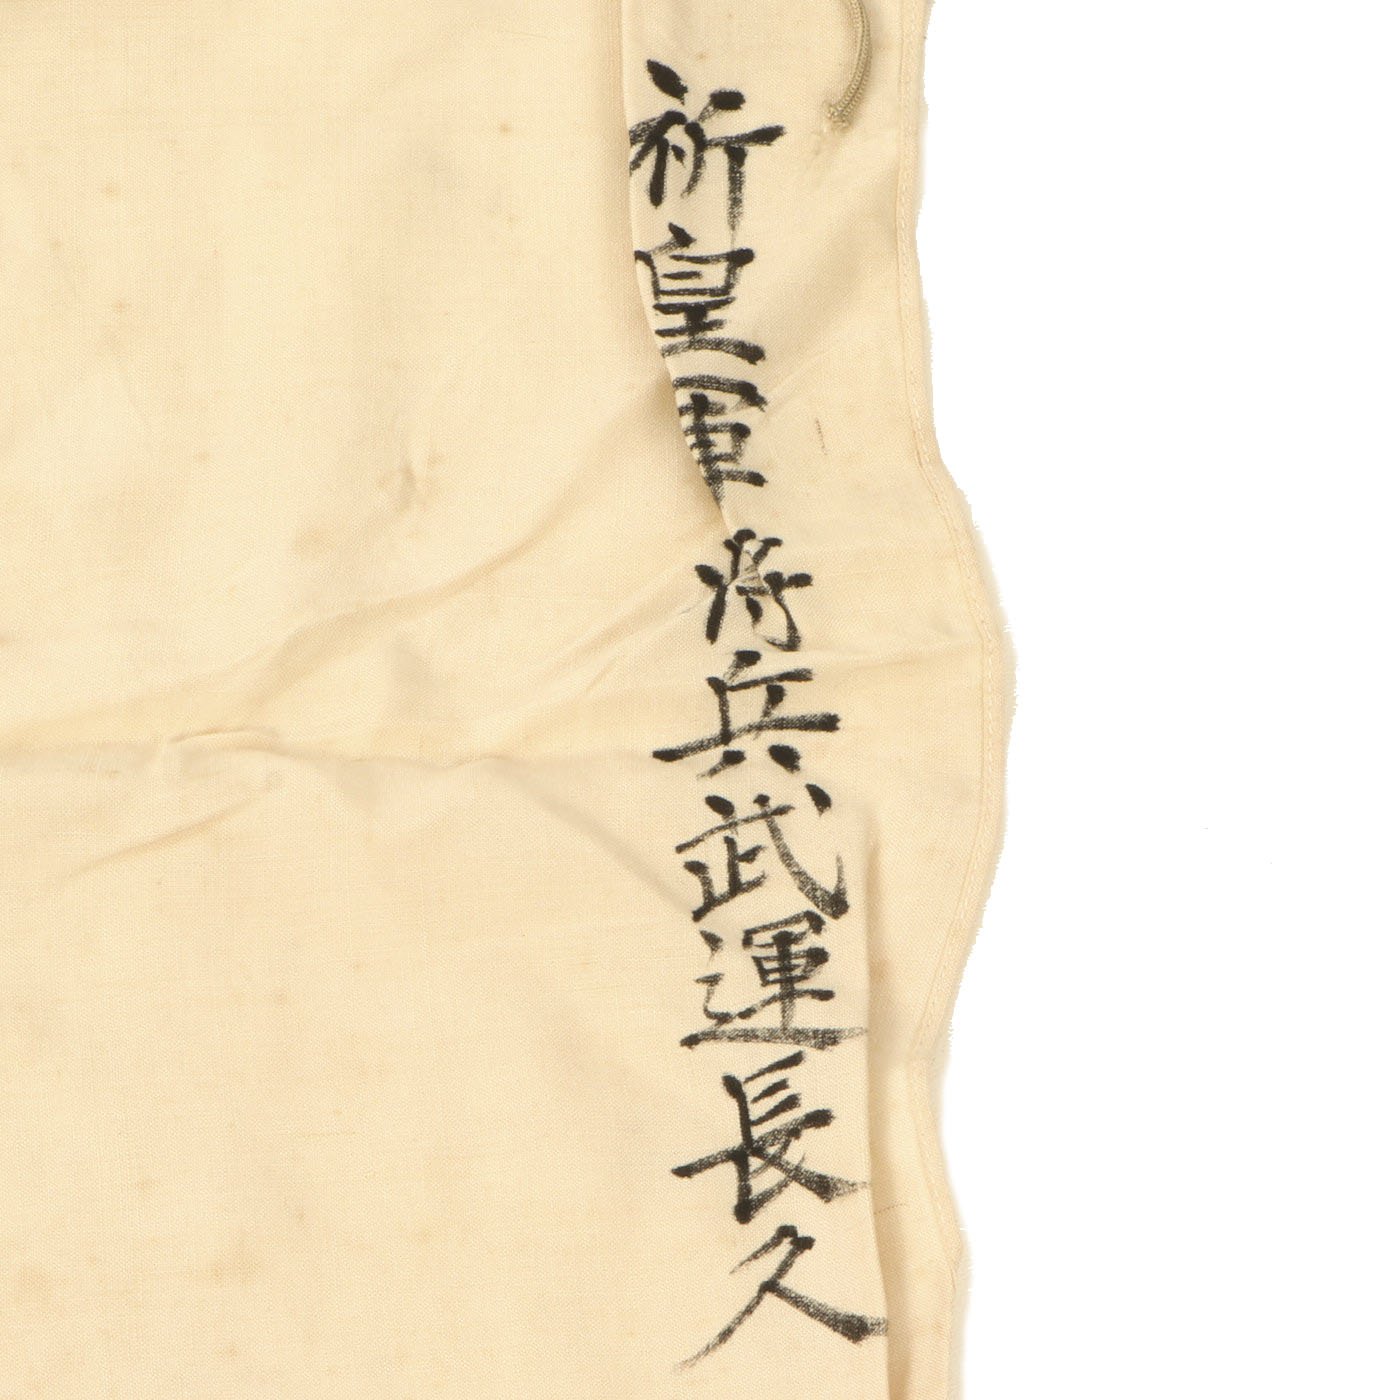 祈皇軍将兵武運長久